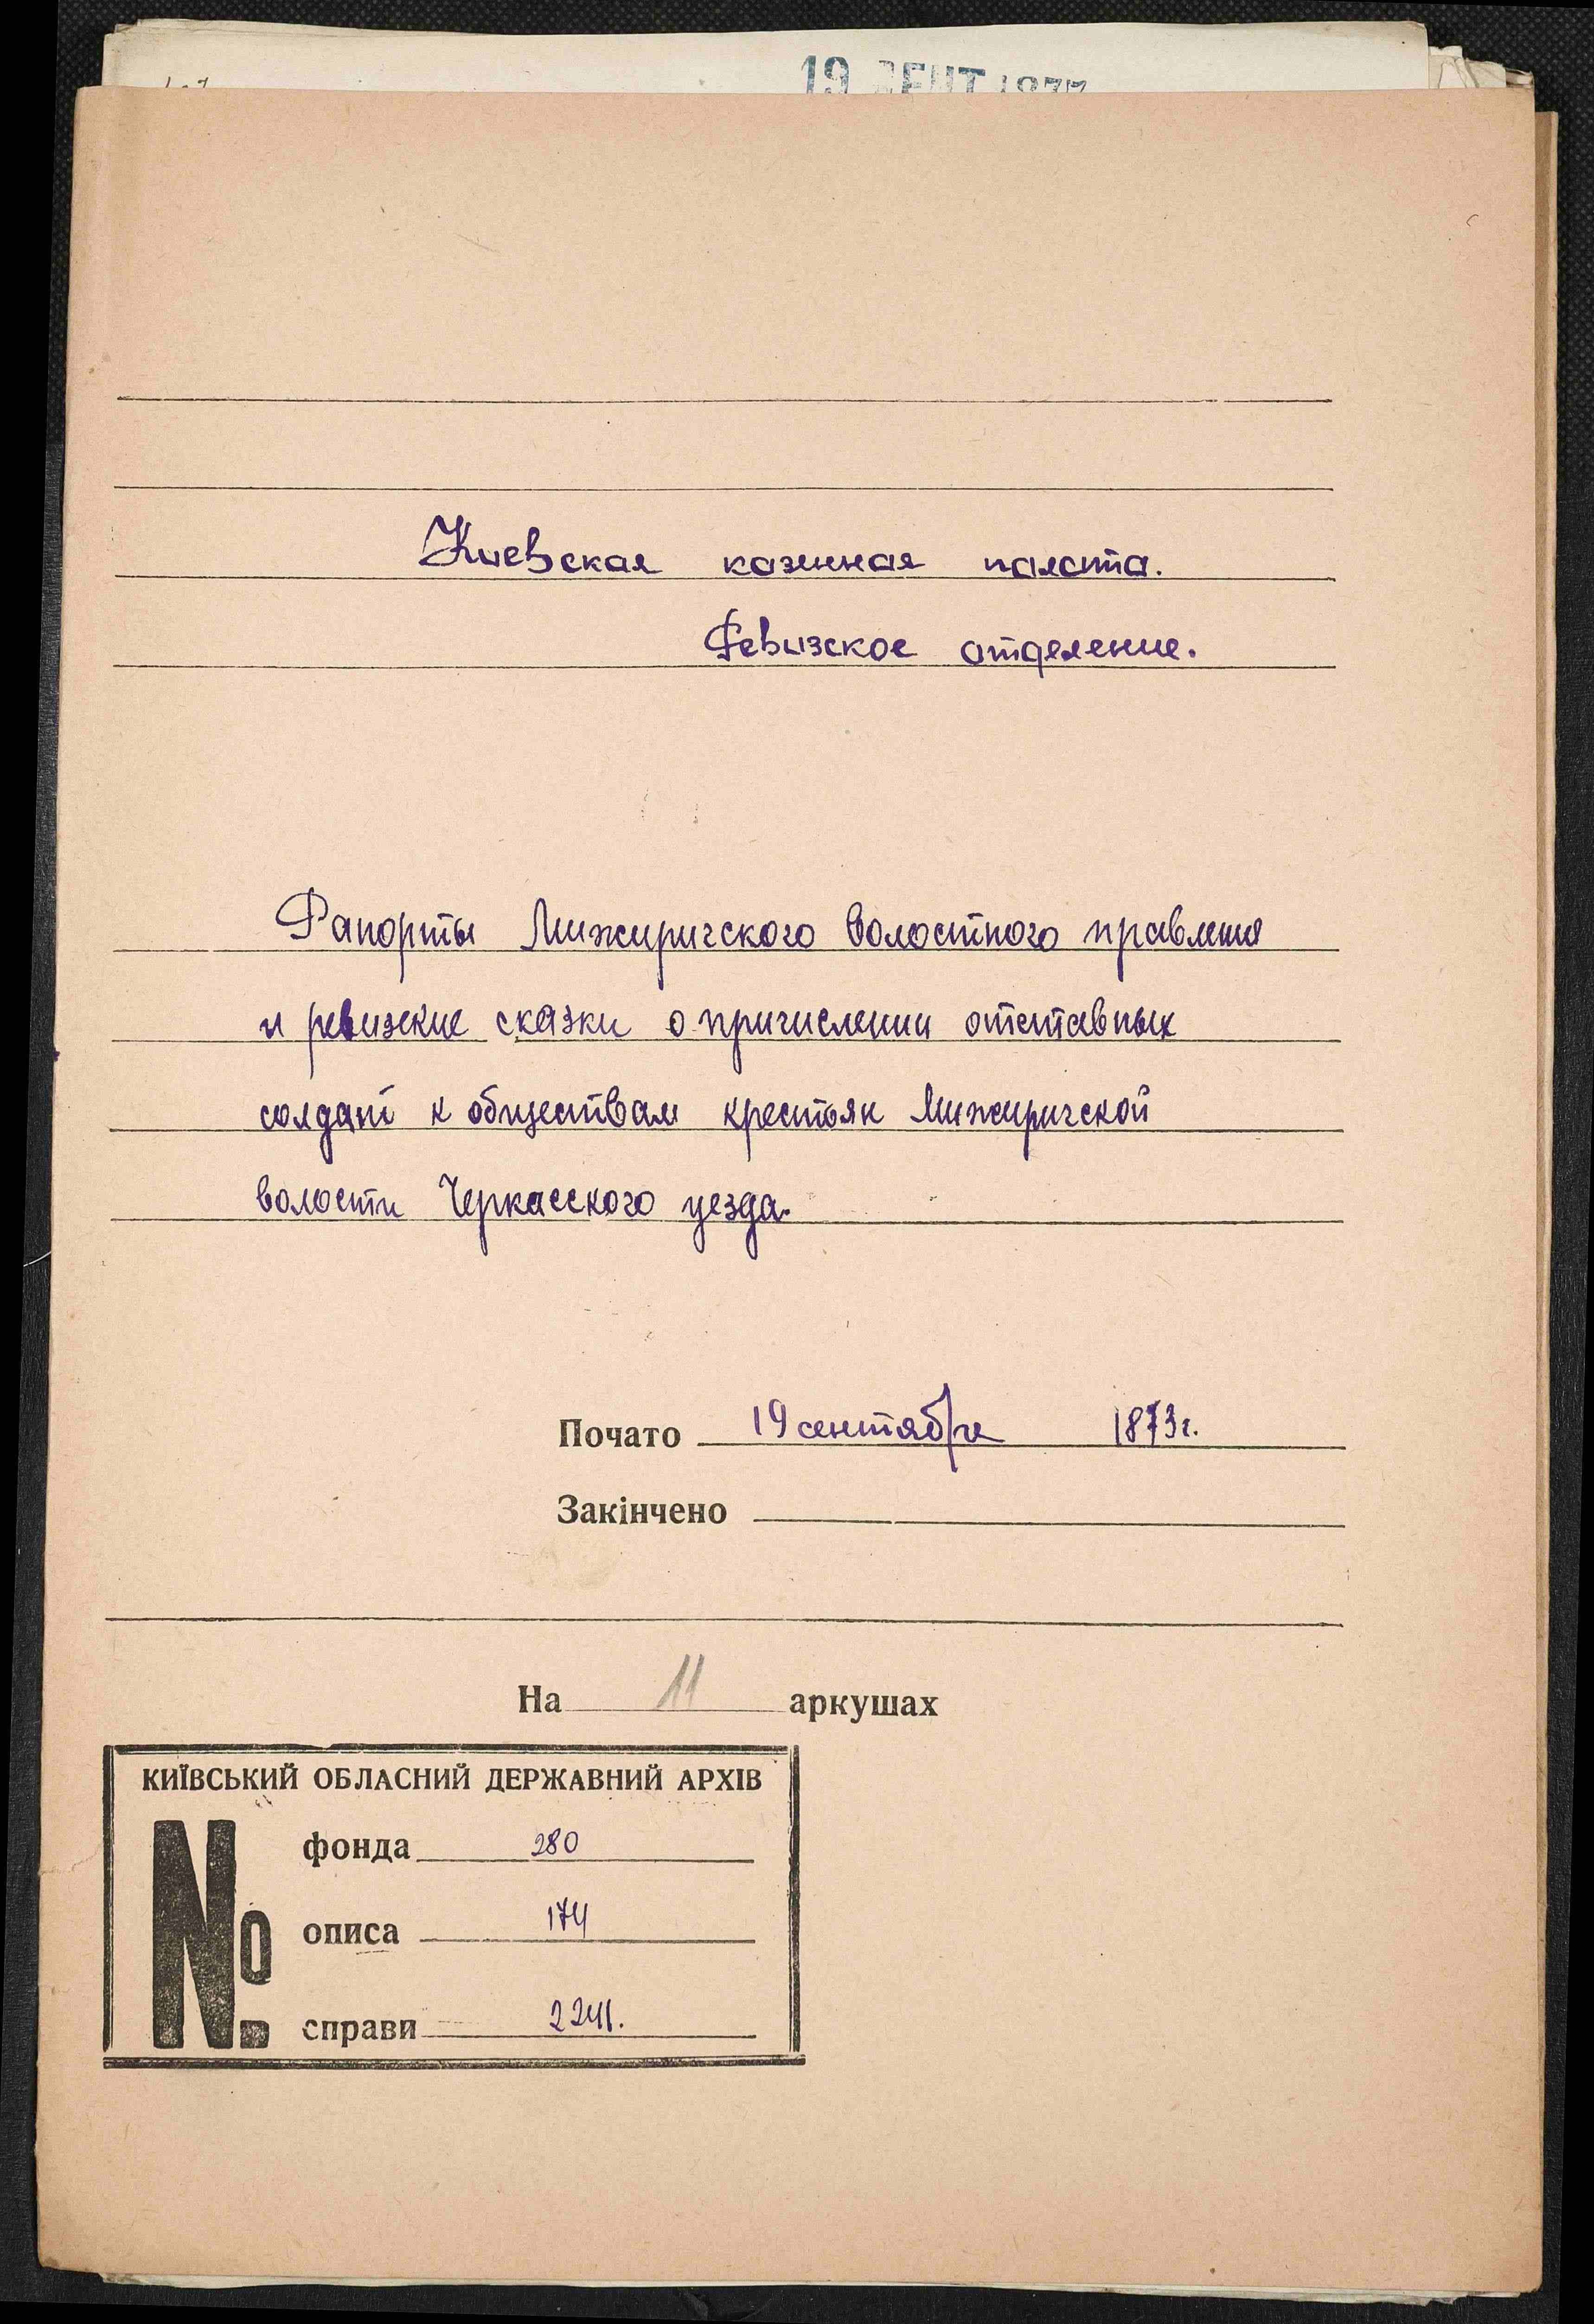 19 СЕНТ 1877
Киевская казенная палата.
Ревизское отделение.
Рапорты Мижиричского волостного правления
и ревизские сказки о причислении отставных
солдат к обществам крестьян Мижиричской
волости Черкасского уезда.
Почато 19 сентября 1873г.
Закінчено
На 11 аркушах
КИЇВСЬКИЙ ОБЛАСНИЙ ДЕРЖАВНИЙ АРХІВ
№ фонда 280
описа 174
справи 2241.